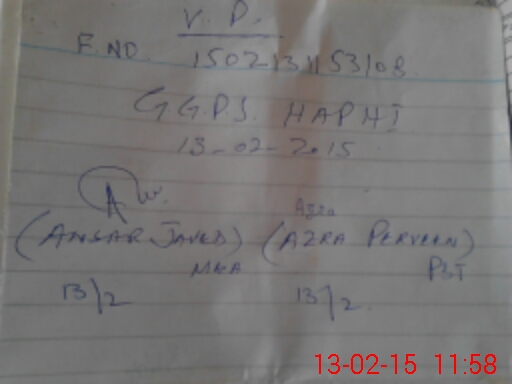 V. D.
E.NO. 150213115310B
G G.P.S. HAPHI
13-02-2015
Azra
(ANSAR JAVED) (AZRA PERVEEN)
MEA PST
13/2 13/2.
13-02-15 11:58